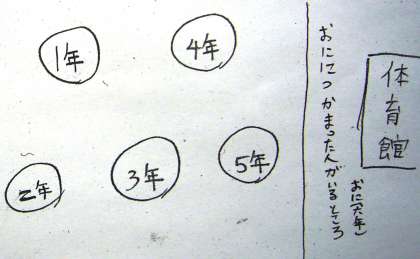 1年
4年
2年
3年
5年
おにつかまった人がいるところ
体育館
おに(六年)